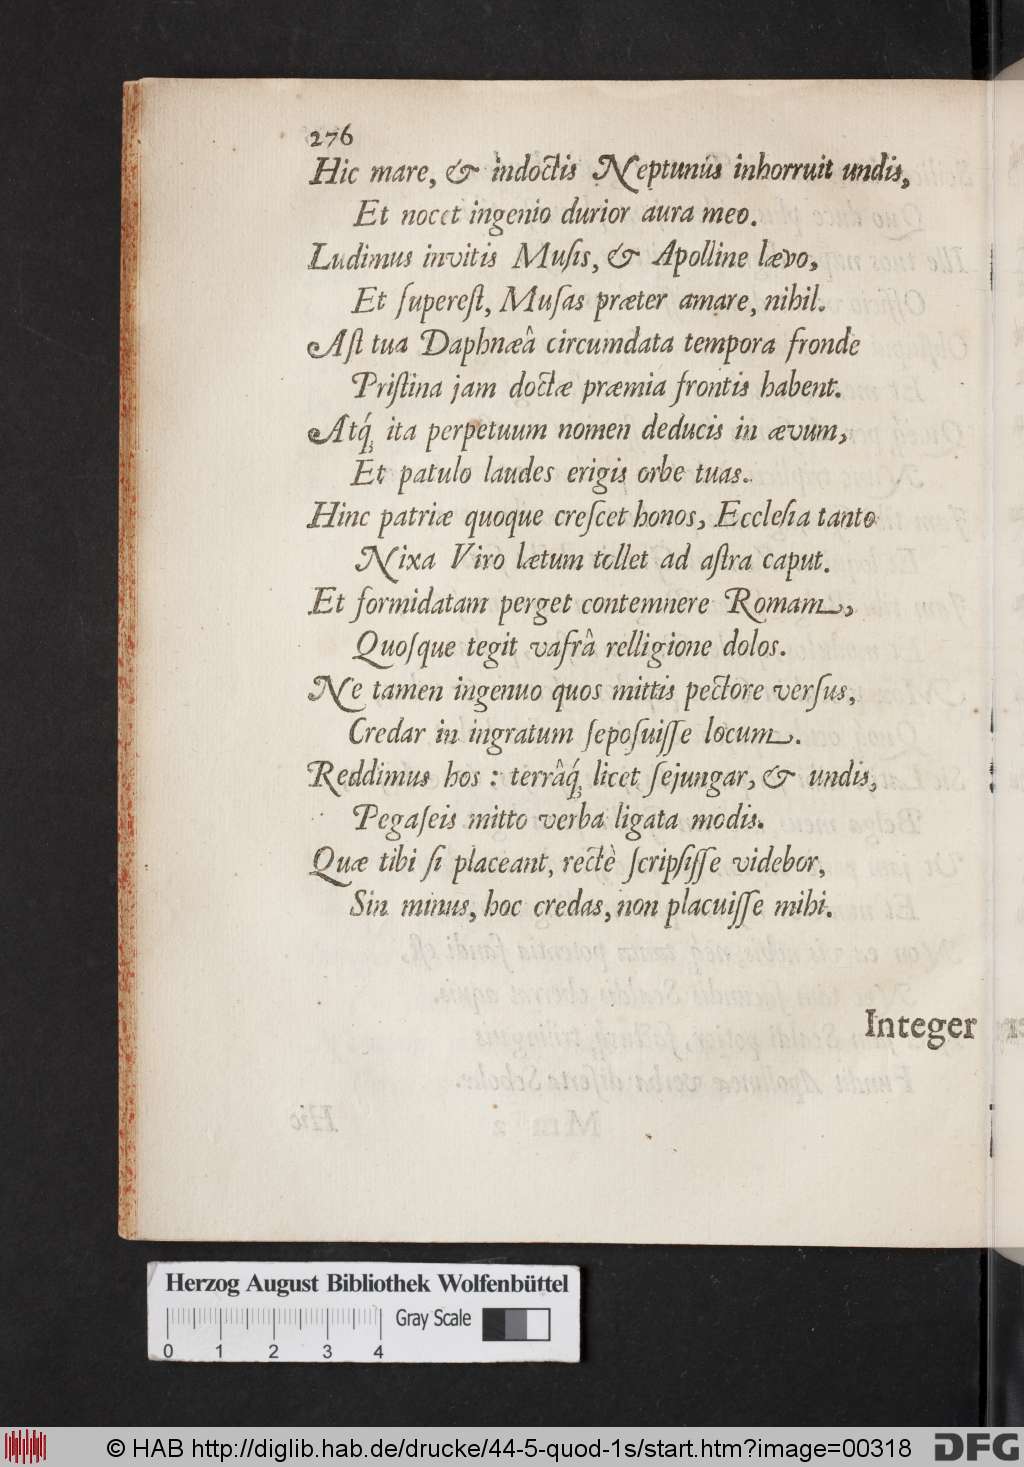 276
Hic mare, & indoctis Neptunus inhorruit undis,
Et nocet ingenio durior aura meo.
Ludimus invitis Muſis, & Apolline lævo,
Et ſupereſt, Muſas præter amare, nihil.
Aſt tua Daphnæâ circumdata tempora fronde
Priſtina jam doctæ præmia frontis habent.
Atq́; ita perpetuum nomen deducis in ævum,
Et patulo laudes erigis orbe tuas.
Hinc patriæ quoque creſcet honos, Eccleſia tanto
Nixa Viro lætum tollet ad aſtra caput.
Et formidatam perget contemnere Romam,
Quoſque tegit vafrâ relligione dolos.
Ne tamen ingenuo quos mittis pectore verſus,
Credar in ingratum ſepoſuiſſe locum.
Reddimus hos : terrâq́; licet ſejungar, & undis,
Pegaſeis mitto verba ligata modis.
Quæ tibi ſi placeant, rectè ſcripſiſſe videbor,
Sin minus, hoc credas, non placuiſſe mihi.
Integer
Herzog August Bibliothek Wolfenbüttel
Gray Scale
0 1 2 3 4
© HAB http://diglib.hab.de/drucke/44-5-quod-1s/start.htm?image=00318
DFG